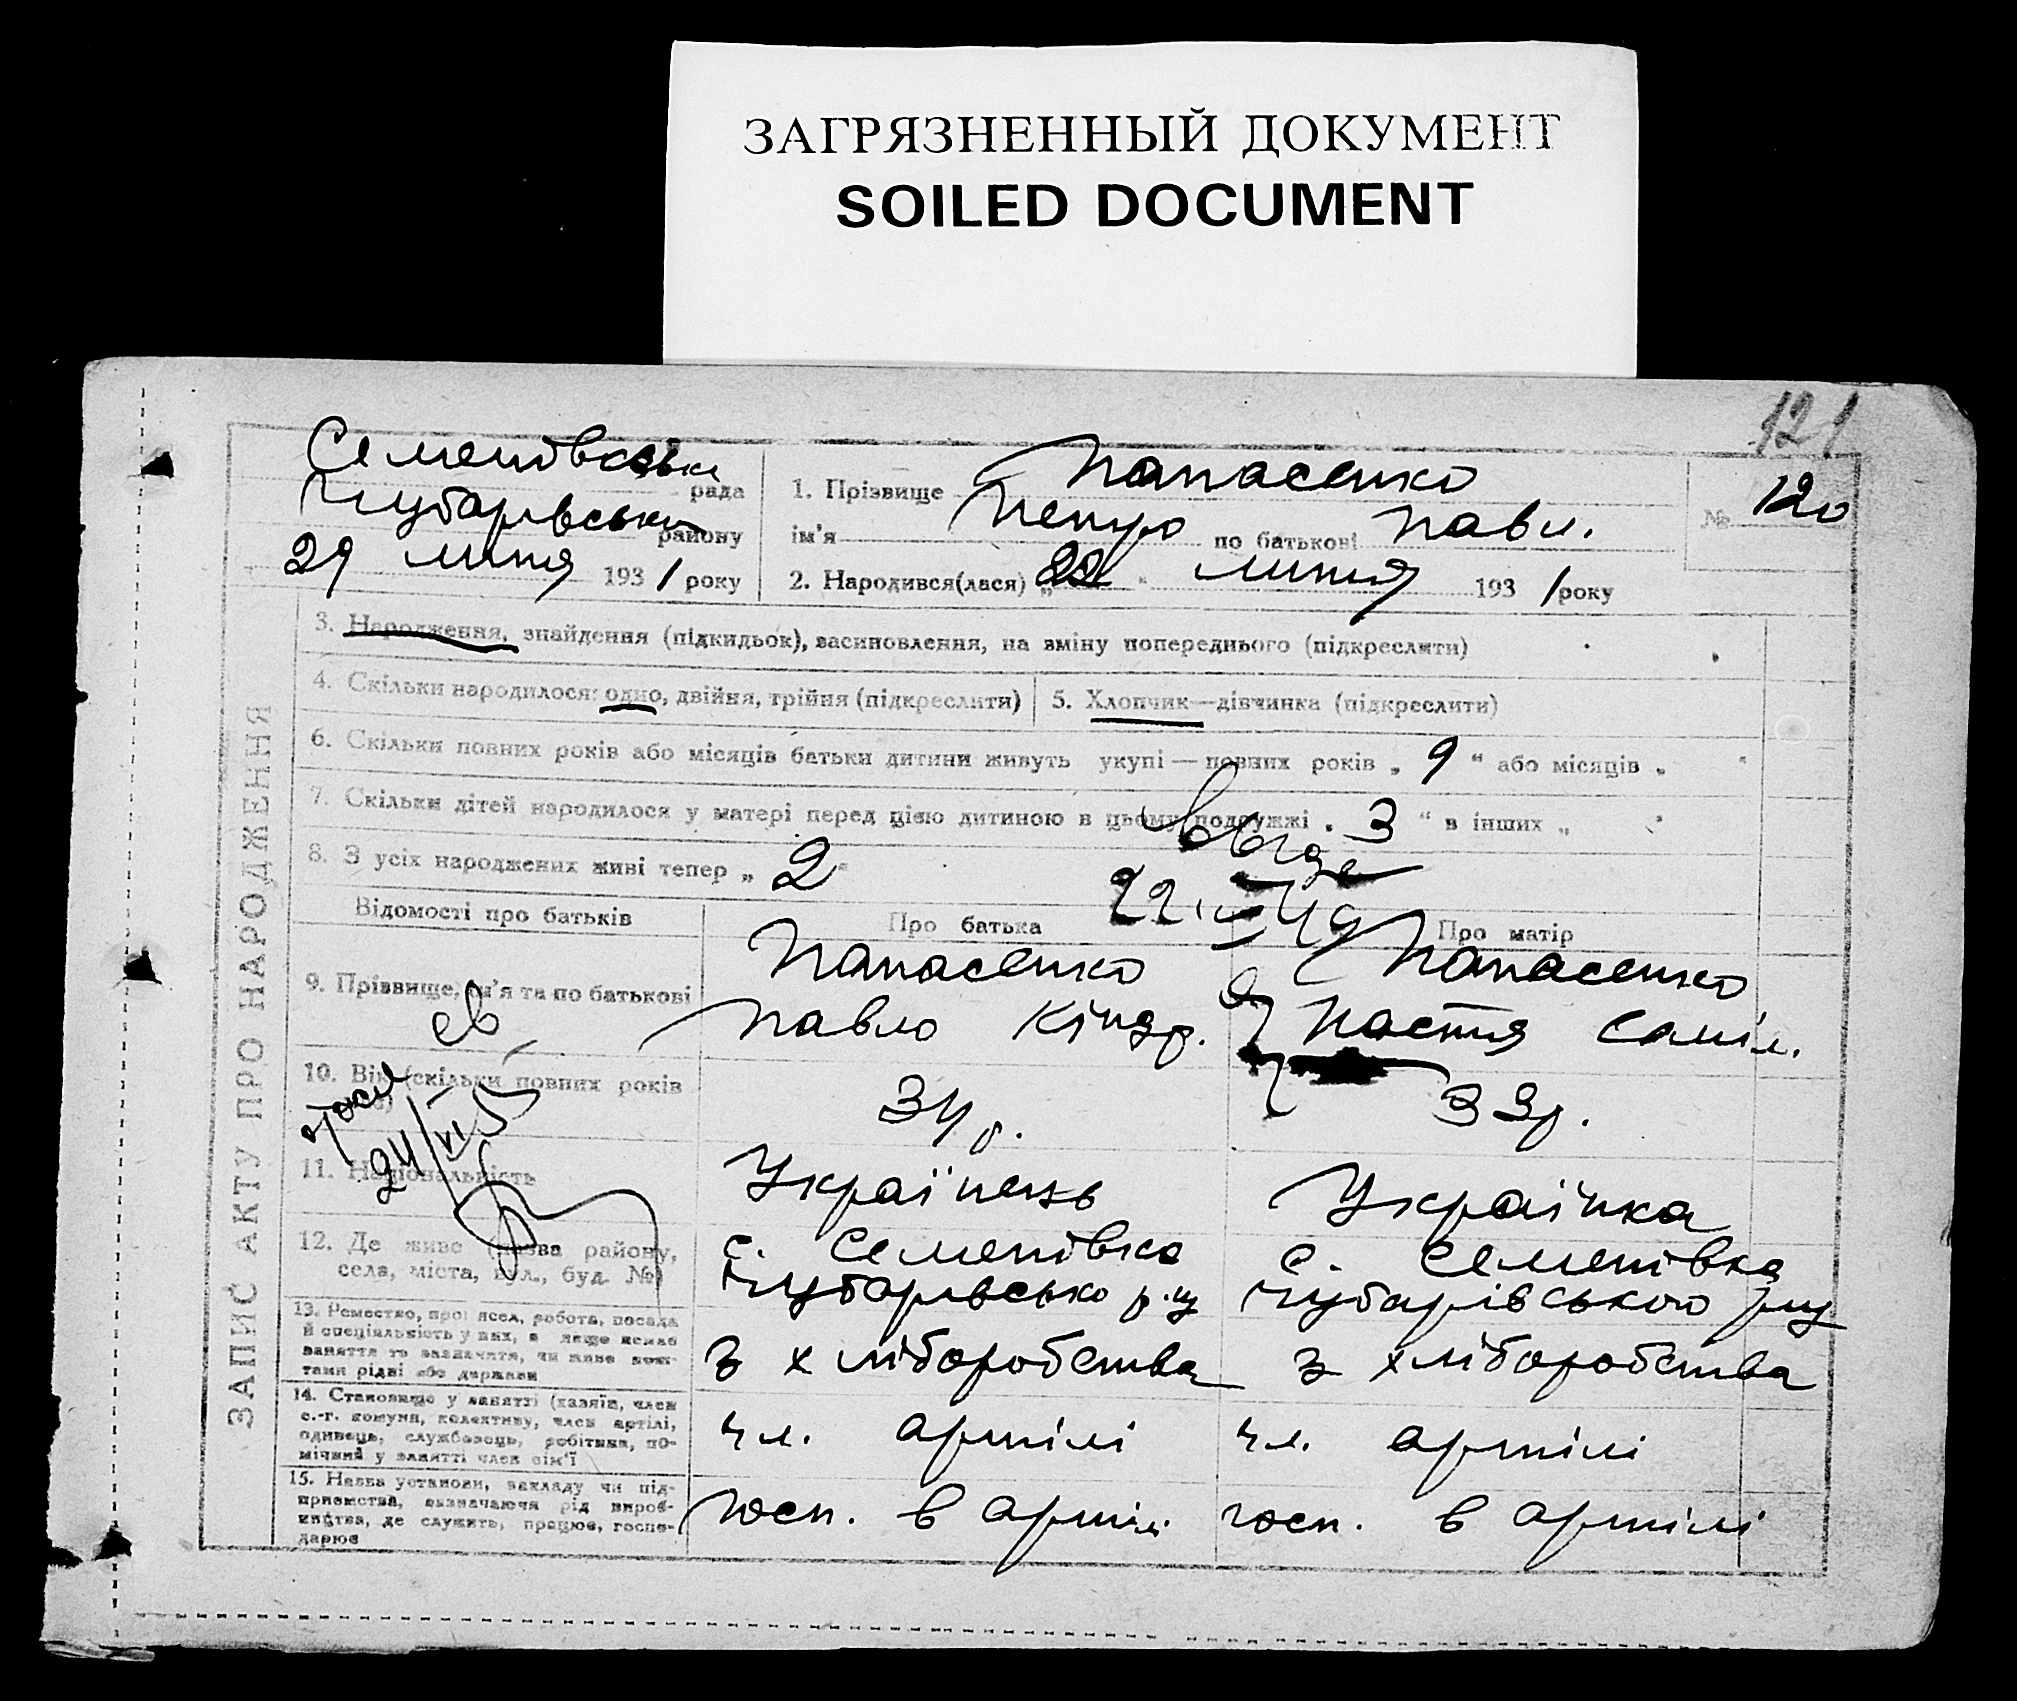 ЗАГРЯЗНЕННЫЙ ДОКУМЕНТ
SOILED DOCUMENT
121
Семенівська рада
Чубарівськи району
29 липня 1931 року
1. Прізвище Панасенко
ім'я Петро по батькові Павл.
2. Народився(лася) „22" липня 1931 року
№ 120
ЗАПИС АКТУ ПРО НАРОДЖЕННЯ
3. Народження, знайдення (підкидьок), васиновлення, на зміну попереднього (підкреслити)
4. Скільки народилося: одно, двійня, трійня (підкреслити)
5. Хлопчик—дівчинка (підкреслити)
6. Скільки повних років або місяців батьки дитини живуть укупі—повних років „ 9 " або місяців „ "
7. Скільки дітей народилося у матері перед цією дитиною в цьому подружжі „ 3 " в інших „ "
8. З усіх народжених живі тепер „ 2 "
Відомості про батьків
Про батька
Про матір
9. Прізвище, ім'я та по батькові
Панасенко
Павло Кіндр.
Панасенко
Настя Саміл.
10. Вік (скільки повних років
34 р.
33 р.
11. Національність
Українець
Українка
12. Де живе (назва району, села, міста, вул., буд. №)
с. Семенівка
Чубарівсько р-у
с. Семенівка
Чубарівського р-у
13. Ремество, професія, робота, посада
й спеціальність у них, а якщо немає
заняття то зазначити, чи живе кош-
тами рідні або держави
з хліборобства
з хліборобства
14. Становище у занятті (хазяїн, член
с.-г. комуни, колективу, член артілі,
одинець, службовець, робітник, по-
мічний у занятті член сім'ї
чл. артілі
чл. артілі
15. Назва установи, закладу чи під-
приємства, визначаючи рід вироб-
ництва, де служить, працює, госпо-
дарює
госп. в артілі
госп. в артілі